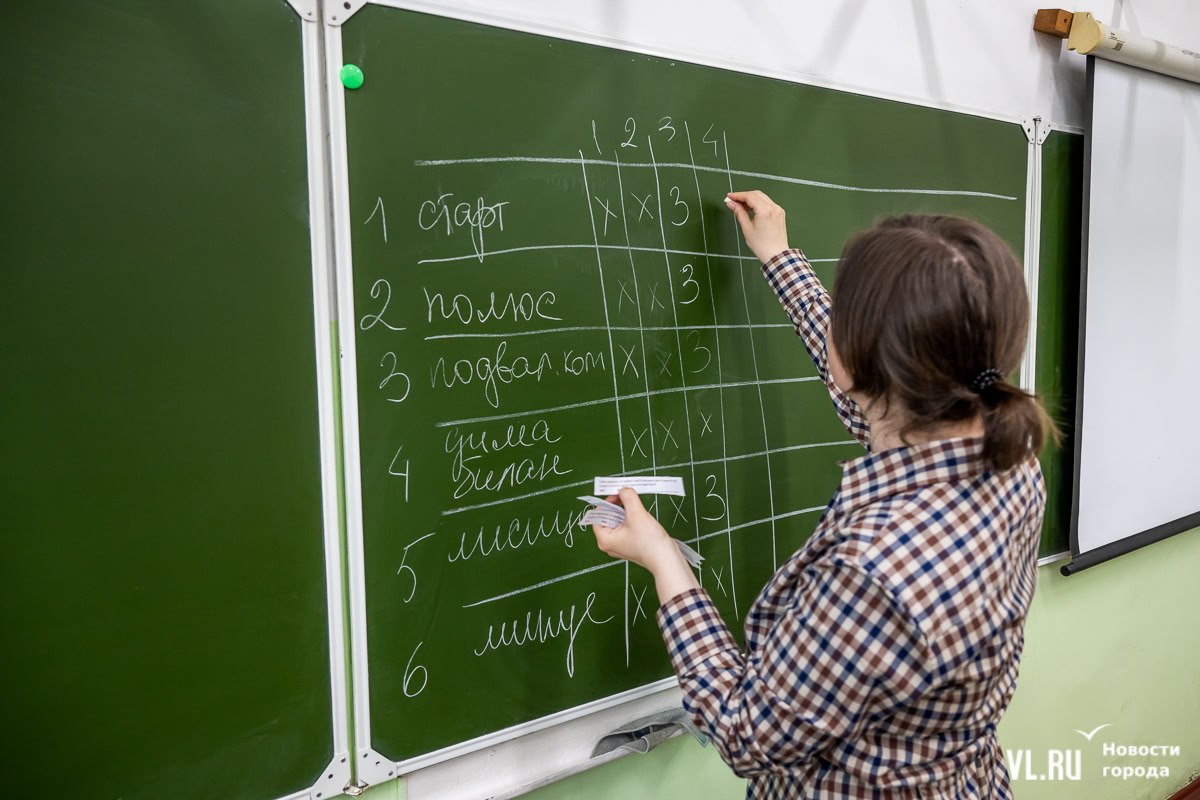 1 2 3 4
1 старт х х 3
2 полюс х х 3
3 подвал.ком х х 3
дима
4 билан х х х
5 х 3
6 минус х х
VL.RU Новости
города